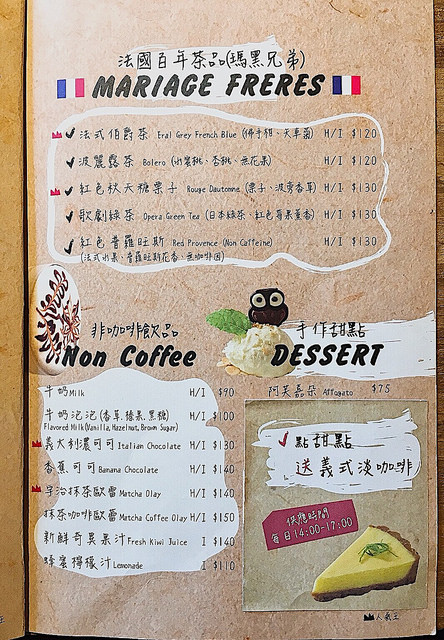 法國百年茶品(瑪黑兄弟)
MARIAGE FRERES
法式伯爵茶 Eral Grey French Blue (佛手柑、矢車菊) H/I $120
波麗露茶 Bolero (水蜜桃、杏桃、無花果) H/I $120
紅色秋天糖栗子 Rouge Dautomne (栗子、波旁香草) H/I $130
歌劇綠茶 Opera Green Tea (日本綠茶、紅色莓果薰香) H/I $130
紅色普羅旺斯 Red Provence (Non Caffeine) H/I $130
(法式水果、普羅旺斯花香、無咖啡因)
非咖啡飲品
Non Coffee
牛奶 Milk H/I $90
牛奶泡泡 (香草.榛果.黑糖) H/I $100
Flavored Milk (Vanilla, Hazelnut, Brown Sugar)
義大利濃可可 Italian Chocolate H/I $130
香蕉可可 Banana Chocolate H/I $140
宇治抹茶歐蕾 Matcha Olay H/I $140
抹茶咖啡歐蕾 Matcha Coffee Olay H/I $150
新鮮奇異果汁 Fresh Kiwi Juice I $140
蜂蜜檸檬汁 Lemonade I $110
手作甜點
DESSERT
阿芙嘉朵 Affogato $75
點甜點
送義式淡咖啡
供應時間
每日14:00-17:00
人氣王